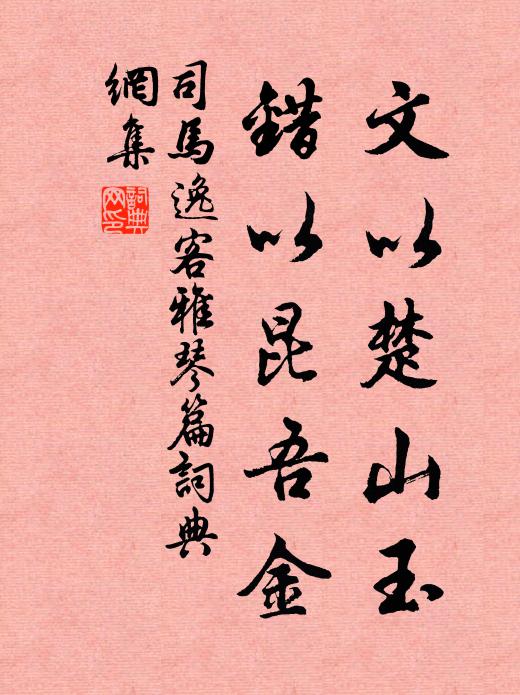 文以楚山玉
錯以昆吾金
司馬逸客雅琴篇詞典
網集
詞典
网印